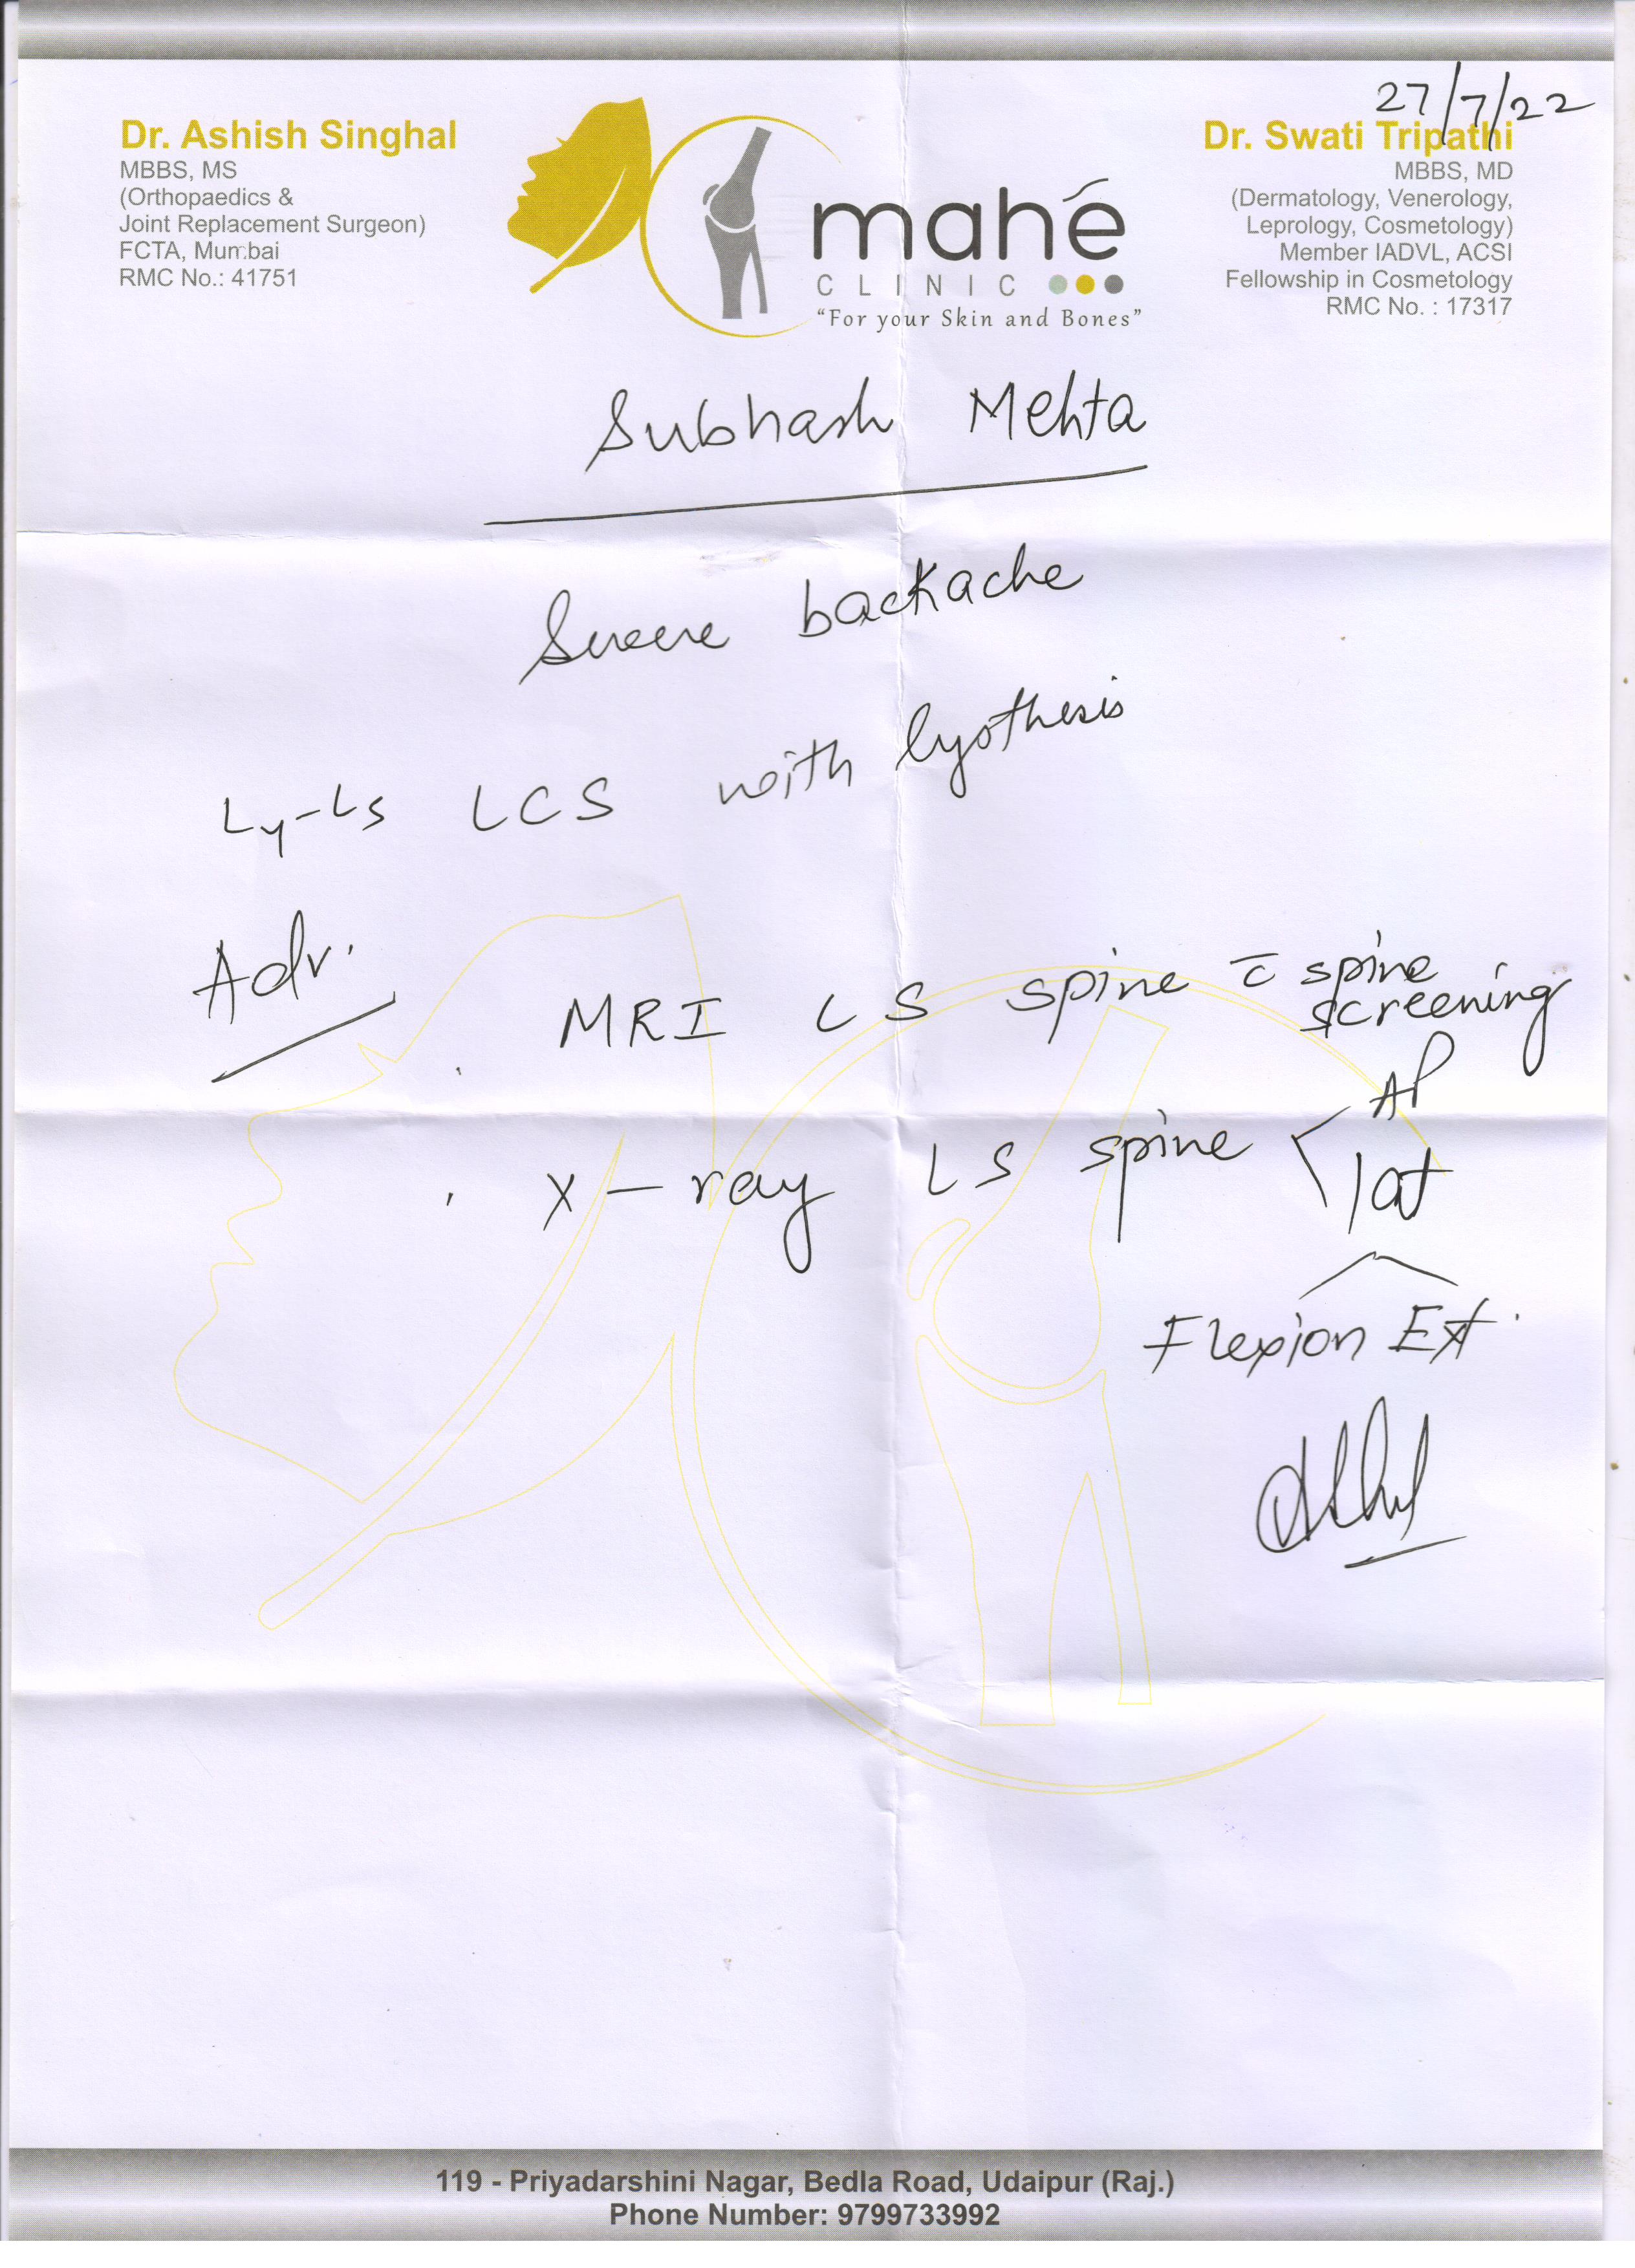 27/7/22
Dr. Ashish Singhal
MBBS, MS
(Orthopaedics &
Joint Replacement Surgeon)
FCTA, Mumbai
RMC No.: 41751
mahé
CLINIC
“For your Skin and Bones”
Dr. Swati Tripathi
MBBS, MD
(Dermatology, Venerology,
Leprology, Cosmetology)
Member IADVL, ACSI
Fellowship in Cosmetology
RMC No. : 17317
Subhash Mehta
Severe backache
L4-L5 LCS with lysthesis
Adv.
. MRI LS spine c̄ spine
screening
. X-ray LS spine < AP
lat
Flexion Ext.
119 - Priyadarshini Nagar, Bedla Road, Udaipur (Raj.)
Phone Number: 9799733992